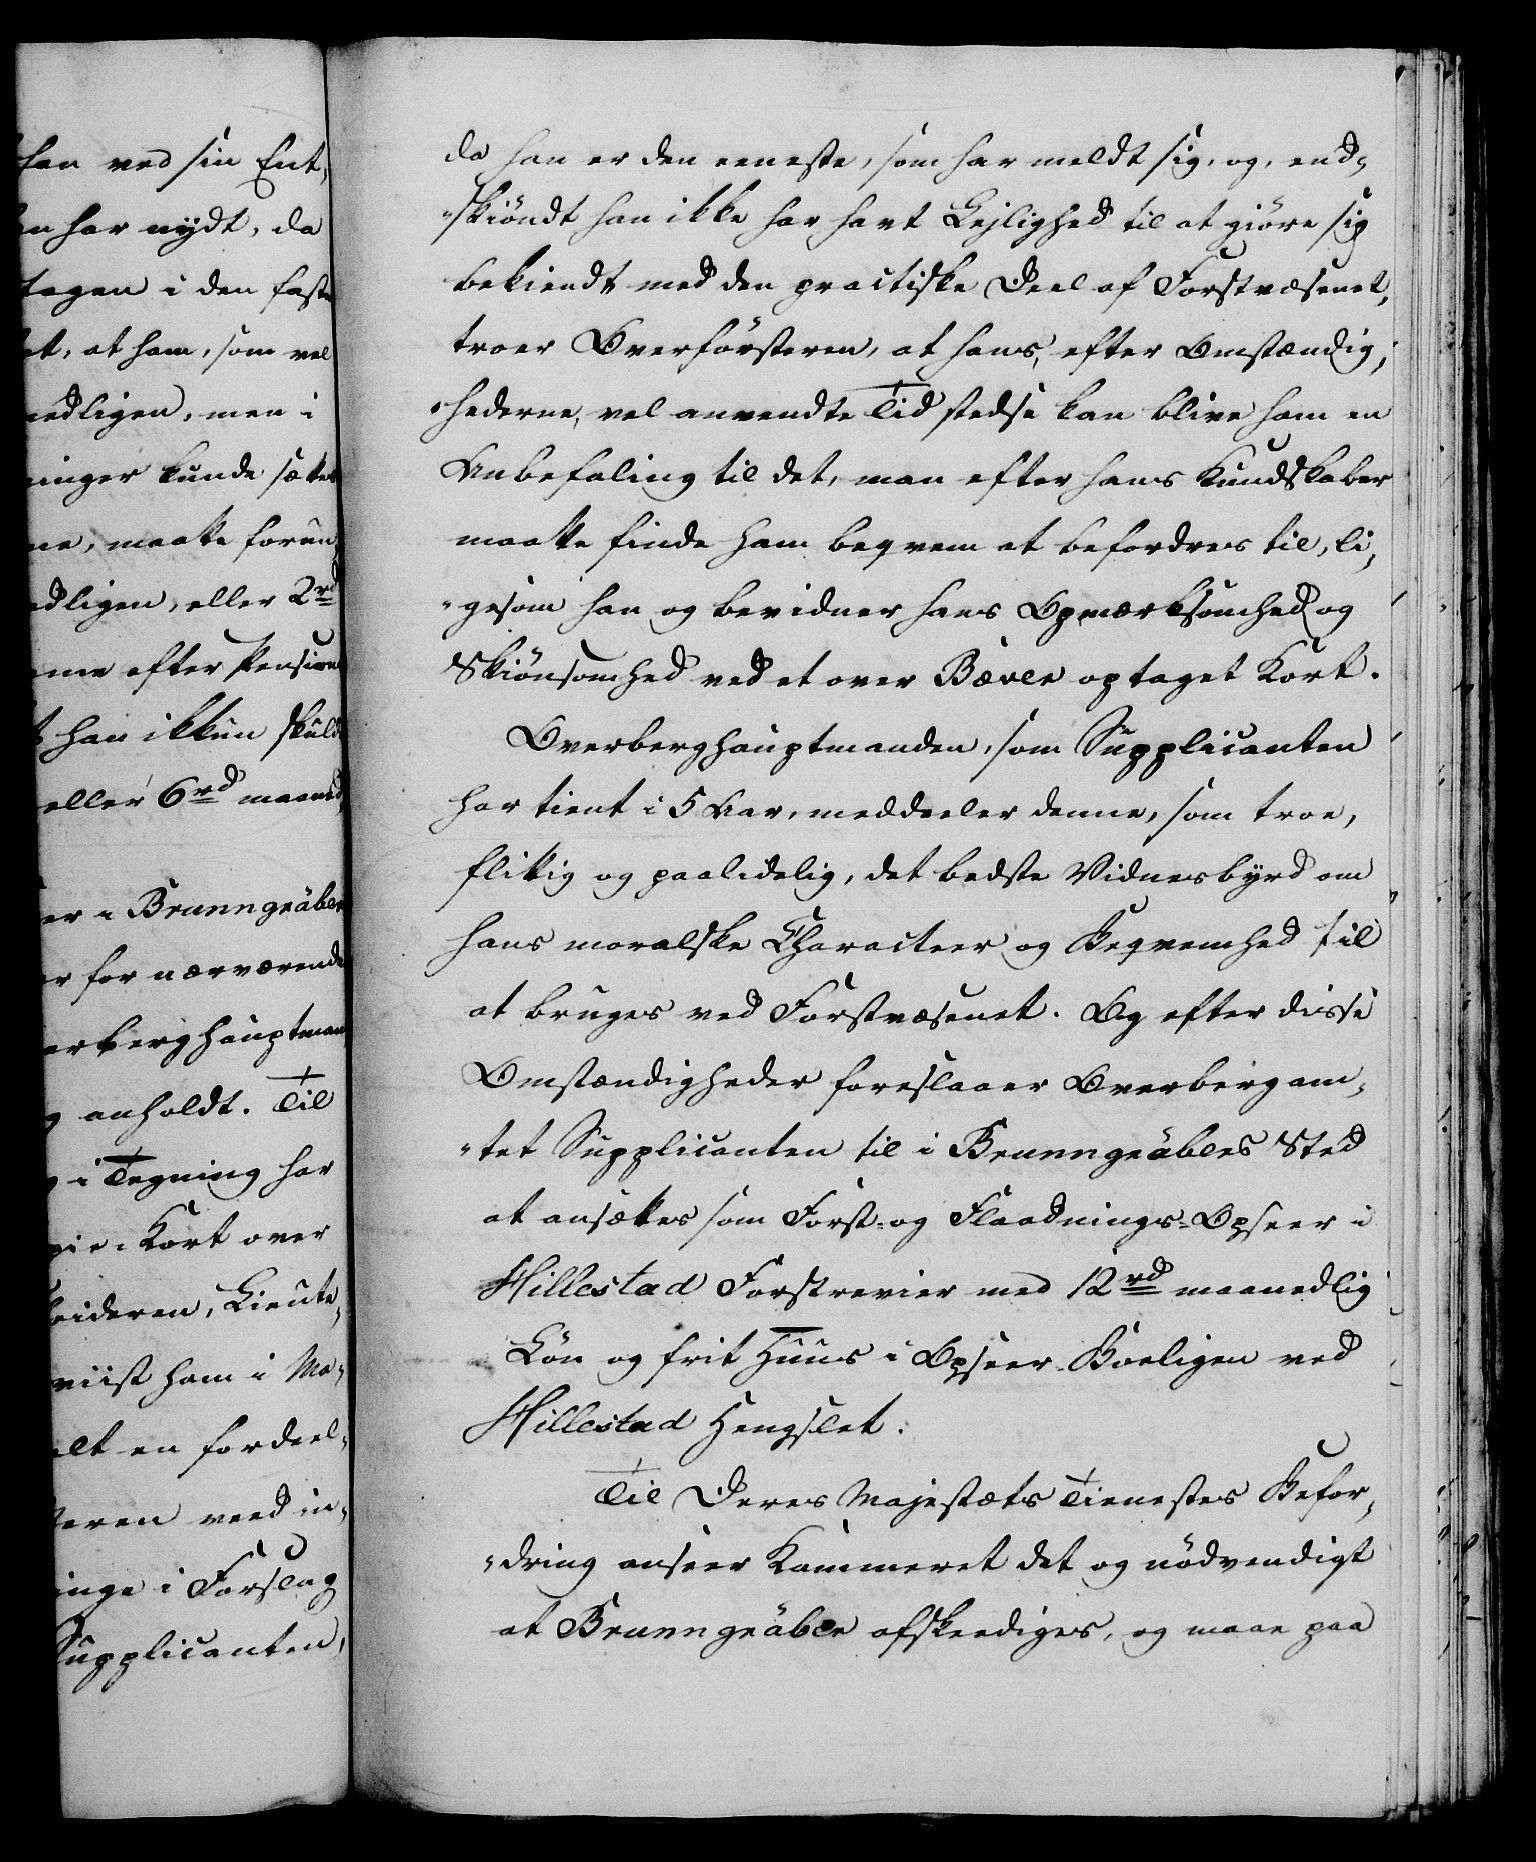 han ved sin Ent-
har nydt, da
tagen i den faste
at, at ham, som vel
nedligen, men i
ninger kunde sættes
ne, maatte forun
edligen, eller 2 rd
me efter Pension
han ikkun skuld
eller 6 rd maaned
er Brunngräber
er for nærværende
erberghauptman
anholdt. Til
i Tegning har
Kort over
beideren, Lieute-
viist ham i Ma-
alt en fordeel-
eren veed in-
inge i Forslag
Supplicanten,
da han er den eeneste, som har meldt sig, og, end-
skiöndt han ikke har havt Lejlighed til at giöre sig
bekiendt med den practiske Deel af Forstvæsenet,
troer Overförsteren, at hans, efter Omstændig-
hederne, vel anvendte Tid stedse kan blive ham en
Anbefaling til det, man efter hans Kundskaber
maatte finde ham beqvem at befordres til, li-
gesom han og bevidner hans Opmærksomhed og
Skiönsomhed ved et over Bæven optaget Kort.
Overberghauptmanden, som Supplicanten
har tient i 5 Aar, meddeeler denne, som troe,
flittig og paalidelig, det bedste Vidnesbyrd om
hans moralske Characteer og Beqvemhed til
at bruges ved Forstvæsenet. Og efter disse
Omstændigheder foreslaaer Overbergam-
tet Supplicanten til i Brunngräbers Sted
at ansættes som Forst- og Flaadnings-Opseer i
Hillestad Forstrevier med 12 rd maanedlig
Lön og frit Huus i Opseer Boeligen ved
Hillestad Hengslet.
Til Deres Majestæts Tienestes Befor-
dring anseer Kammeret det og nödvendigt
at Brunngräber afskeediges, og maae paa